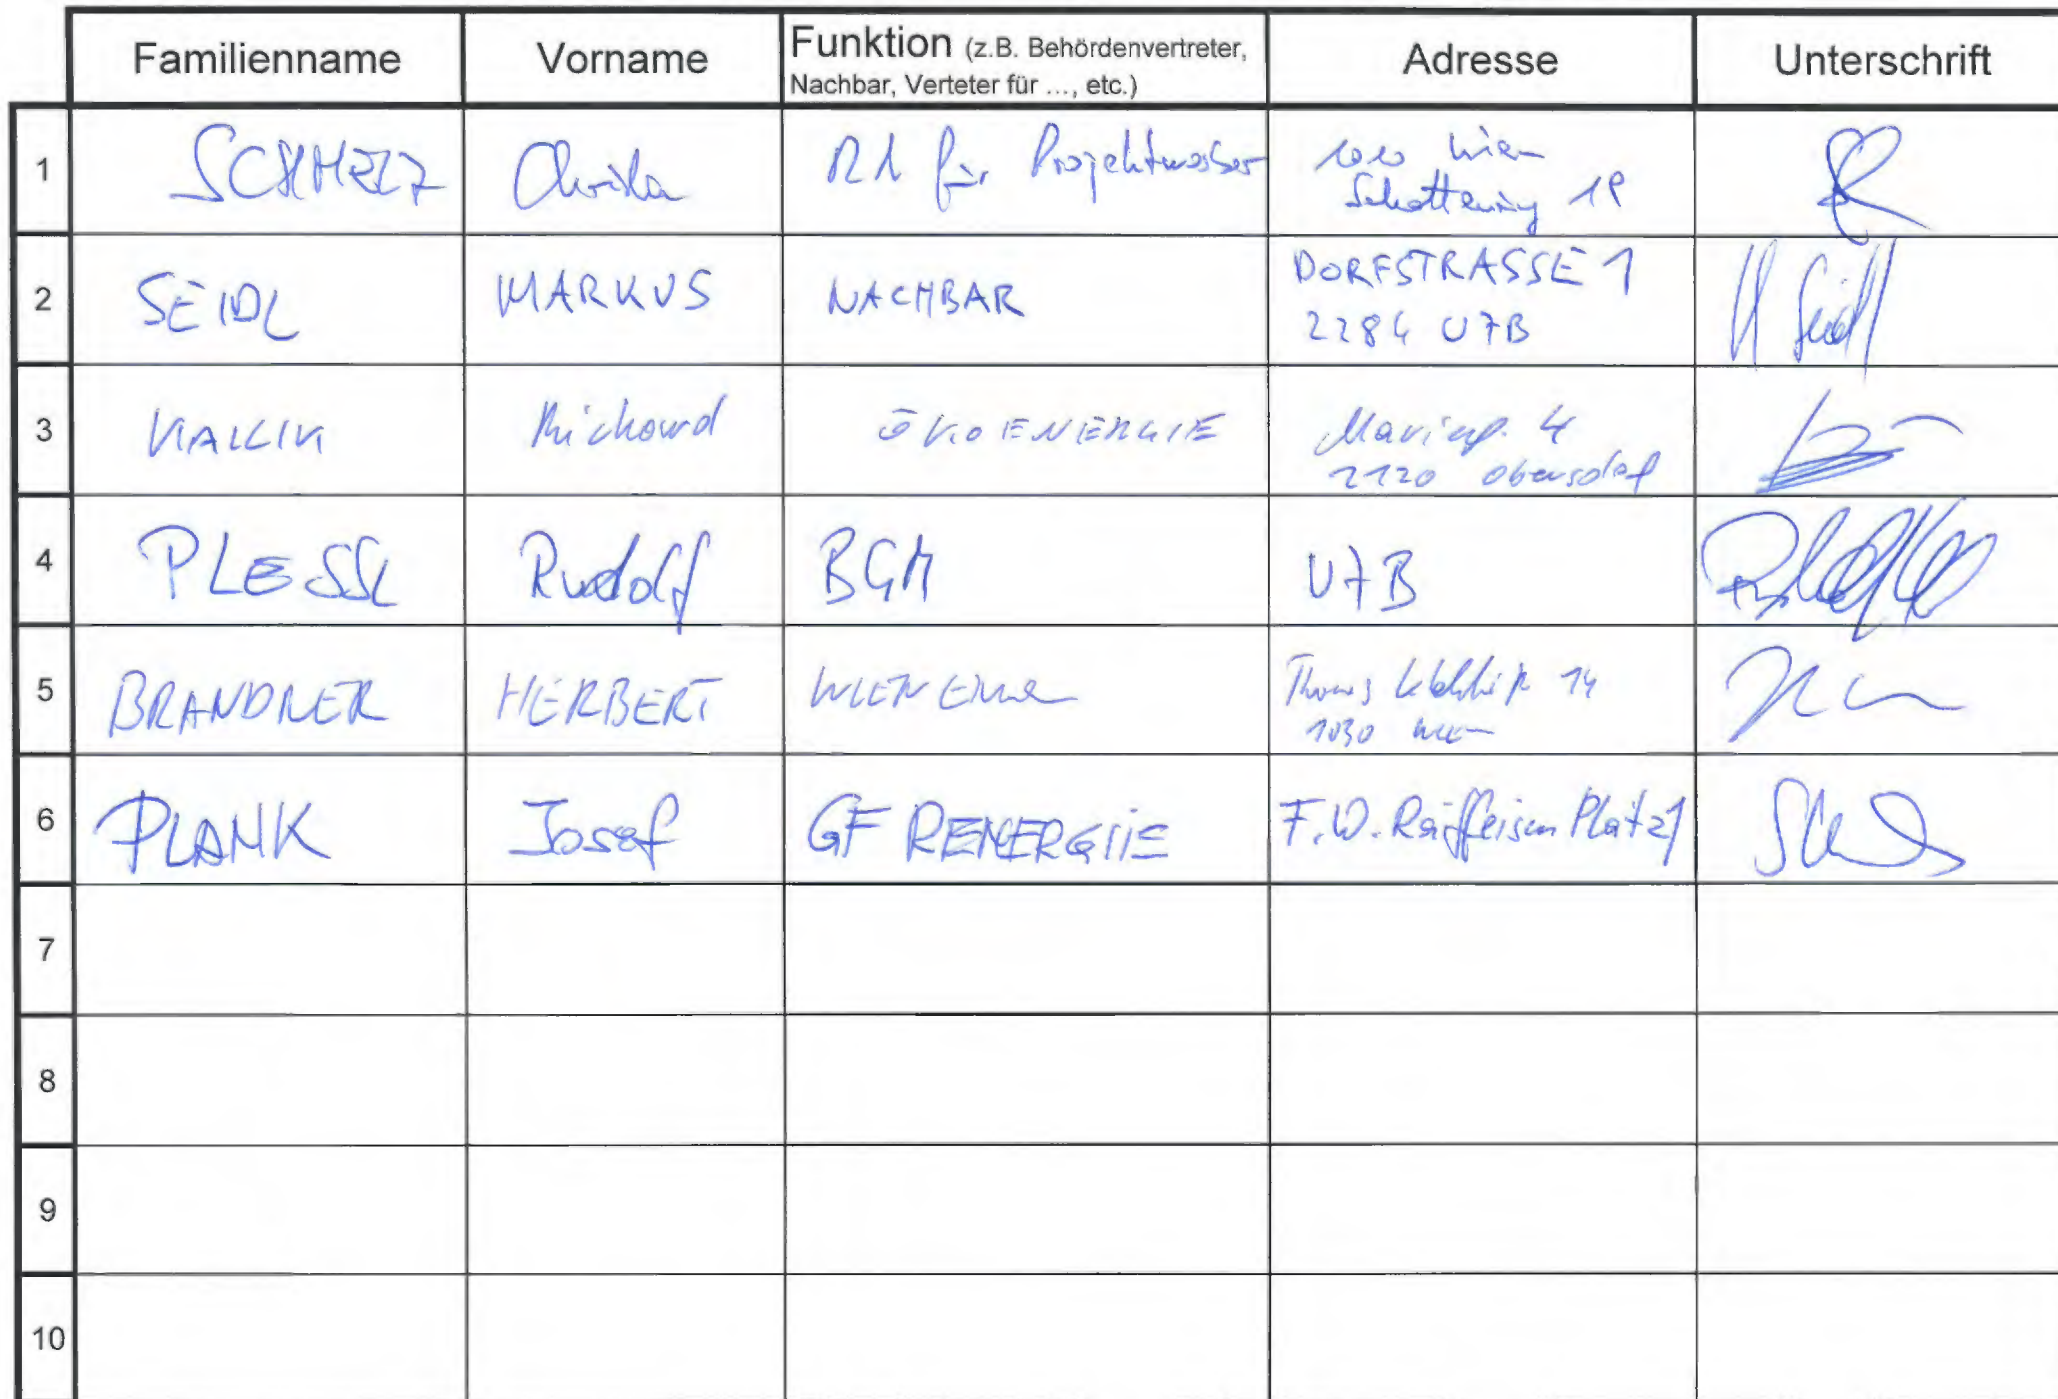 Familienname Vorname Funktion (z.B. Behördenvertreter, Adresse Unterschrift
Nachbar, Verteter für ..., etc.)
1 SCHMELZ Christian RA für Projektwerber 1010 Wien
Schottenring 19
2 SEIDL MARKUS NACHBAR DORFSTRASSE 1 Seidl
2284 U7B
3 KALCIK Richard ÖKOENERGIE 4
2120 Obersdorf
4 PLESSL Rudolf BGM U7B
5 BRANDNER HERBERT WIEN Thomas 14
1030 Wien
6 PLANK Josef GF RENERGIE F.W. Raiffeisen Platz 1
7
8
9
10